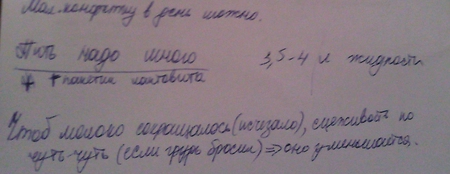 Мал. конфетку в день можно.
Пить надо много 3,5-4 л жидкости
+ пакетик кантовита
Чтоб молоко сокращалось (исчезало), сцеживать по
чуть-чуть (если грудь бросил) => оно уменьшается.